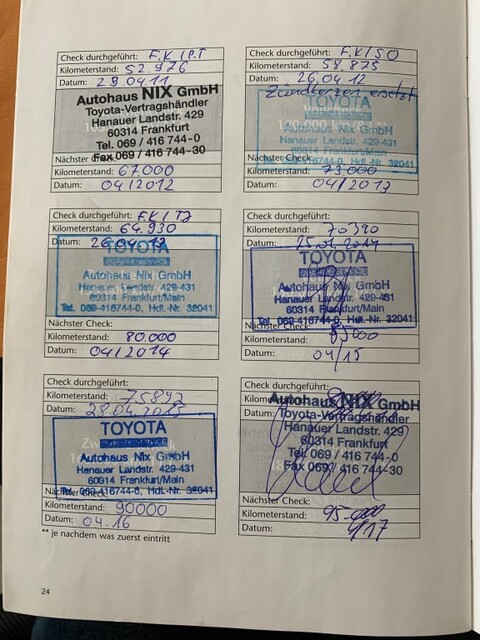 Check durchgeführt: F.K/P.T
Kilometerstand: 52.976
Datum: 29.04.11
Autohaus NIX GmbH
Toyota-Vertragshändler
Hanauer Landstr. 429
60314 Frankfurt
Tel. 069 / 416 744-0
Fax 069 / 416 744-30
Nächster Check:
Kilometerstand: 67.000
Datum: 04/2012
Check durchgeführt: F.K/SO
Kilometerstand: 58.875
Datum: 26.04.12
Zündkerzen ersetzt
TOYOTA
Autohaus Nix GmbH
Hanauer Landstr. 429-431
60314 Frankfurt/Main
Tel. 069-416744-0, Hdl.-Nr. 32041
Nächster Check:
Kilometerstand: 73.000
Datum: 04/2013
Check durchgeführt: F.K/TJ
Kilometerstand: 64.930
Datum: 26.04.13
TOYOTA
Autohaus Nix GmbH
Hanauer Landstr. 429-431
60314 Frankfurt/Main
Tel. 069-416744-0, Hdl.-Nr. 32041
Nächster Check:
Kilometerstand: 80.000
Datum: 04/2014
Check durchgeführt:
Kilometerstand: 70390
Datum: 2014
TOYOTA
Autohaus Nix GmbH
Hanauer Landstr. 429-431
60314 Frankfurt/Main
Tel. 069-416744-0, Hdl.-Nr. 32041
Nächster Check:
Kilometerstand:
Datum: 04/15
Check durchgeführt:
Kilometerstand: 75892
Datum: 28.04.2015
TOYOTA
Autohaus Nix GmbH
Hanauer Landstr. 429-431
60314 Frankfurt/Main
Tel. 069-416744-0, Hdl.-Nr. 32041
Nächster Check:
Kilometerstand: 90000
Datum: 04.16
Check durchgeführt:
Autohaus NIX GmbH
Toyota-Vertragshändler
Hanauer Landstr. 429
60314 Frankfurt
Tel. 069 / 416 744-0
Fax 069 / 416 744-30
Nächster Check:
Kilometerstand: 95.000
Datum: 4/17
** je nachdem was zuerst eintritt
24